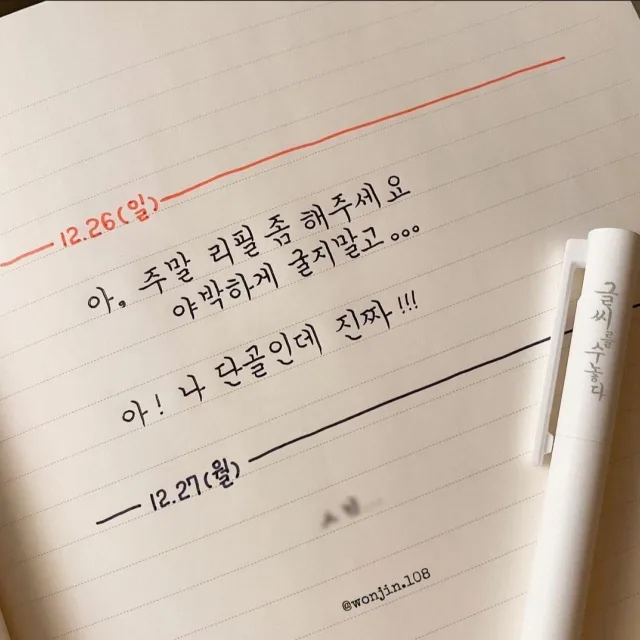 12.26(일)
아. 주말 리필 좀 해주세요
야박하게 굴지말고...
아! 나 단골인데 진짜!!!
12.27(월)
@wonjin.108
글씨로 수놓다